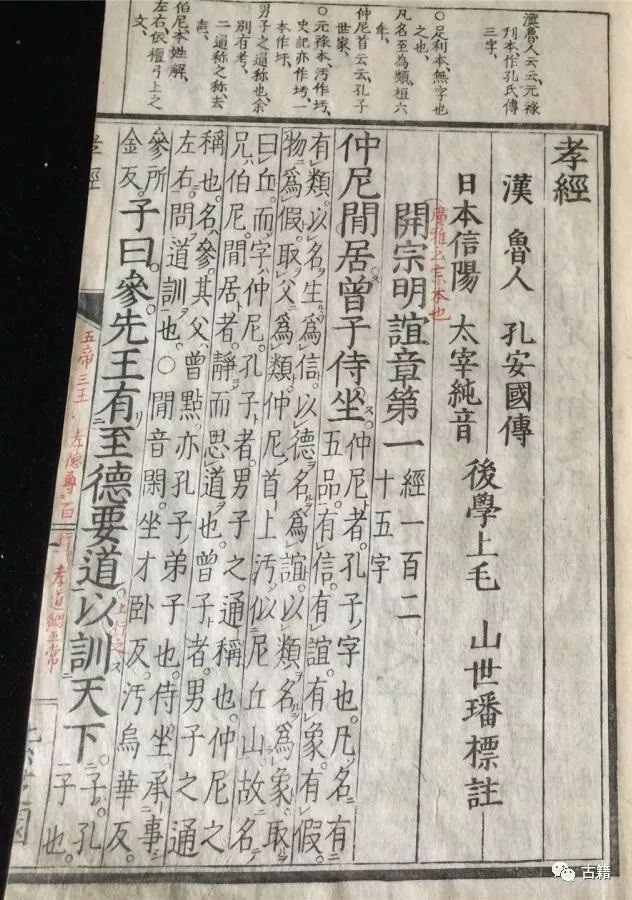 漢魯人云云元祿
刊本作孔氏傳
三字
○足利本無字也
之也
凡名至為類桓六
年
仲尼首云云孔子
世家
○元祿本汚作圬
史記亦作圩一
男子之通稱也余
別有考
二通称之称去
伯尼本姓解
左右依檀弓上之
文
孝經
漢 魯人 孔安國傳
日本信陽 太宰純音
後學上毛 山世璠標註
開宗明誼章第一
經一百二
十五字
廣雅云宗本也
仲尼閒居。曾子侍坐。
仲尼者。孔子字也。凡名有
五品。有信。有誼。有象。有假。
有類。以名生爲信。以德名爲誼。以類名爲象。取
物爲假。取父爲類。仲尼首上汚。似尼丘山。故名
曰丘。而字仲尼。孔子者。男子之通稱也。仲尼之
兄伯尼。閒居者。靜而思道也。曾子者。男子之通
稱也。名參。其父曾點。亦孔子弟子也。侍坐。承事
左右。問道訓也。○閒音閑。坐才卧反。汚烏華反。
參所
金反。
子曰。參。先王有至德要道。以訓天下。
子。孔
子也。
上行之
五帝三王
百行
孝道總五常
孝經
古籍